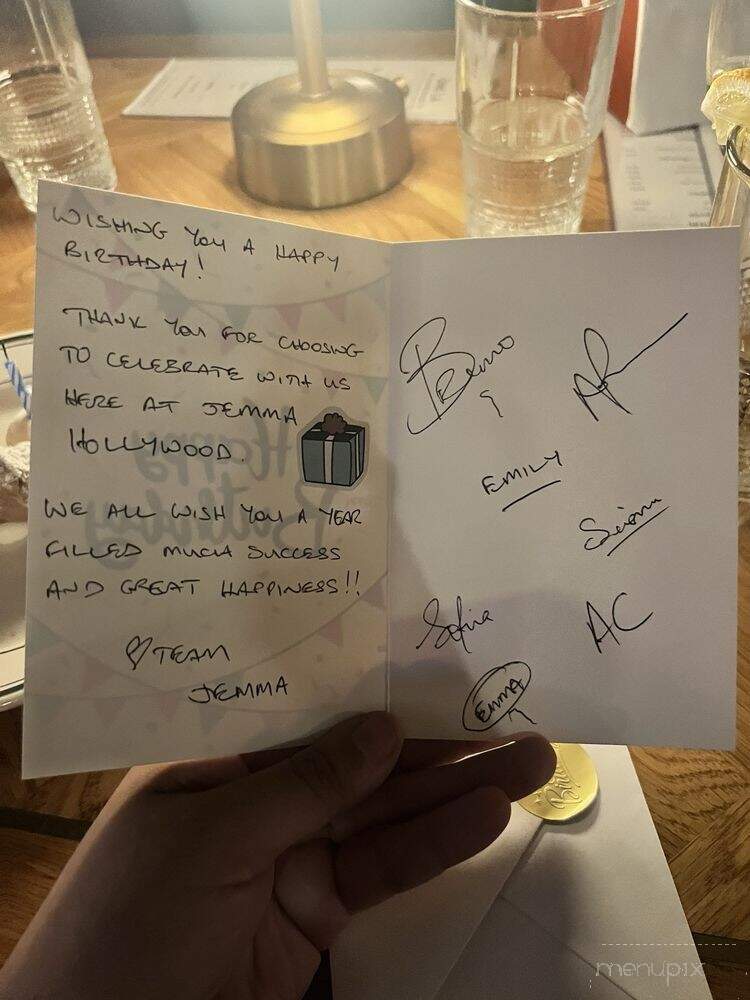 WISHING YOU A HAPPY
BIRTHDAY!
THANK YOU FOR CHOOSING
TO CELEBRATE WITH US
HERE AT JEMMA
HOLLYWOOD.
WE ALL WISH YOU A YEAR
FILLED MUCH SUCCESS
AND GREAT HAPPINESS!!
♡ TEAM
JEMMA
Bruno
EMILY
Sofia
AC
EMMA
Happy
Birthday
menupix